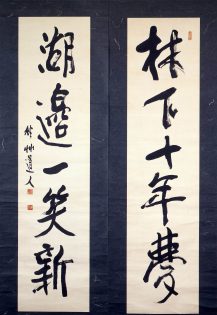 林下十年夢
湖邊一笑新